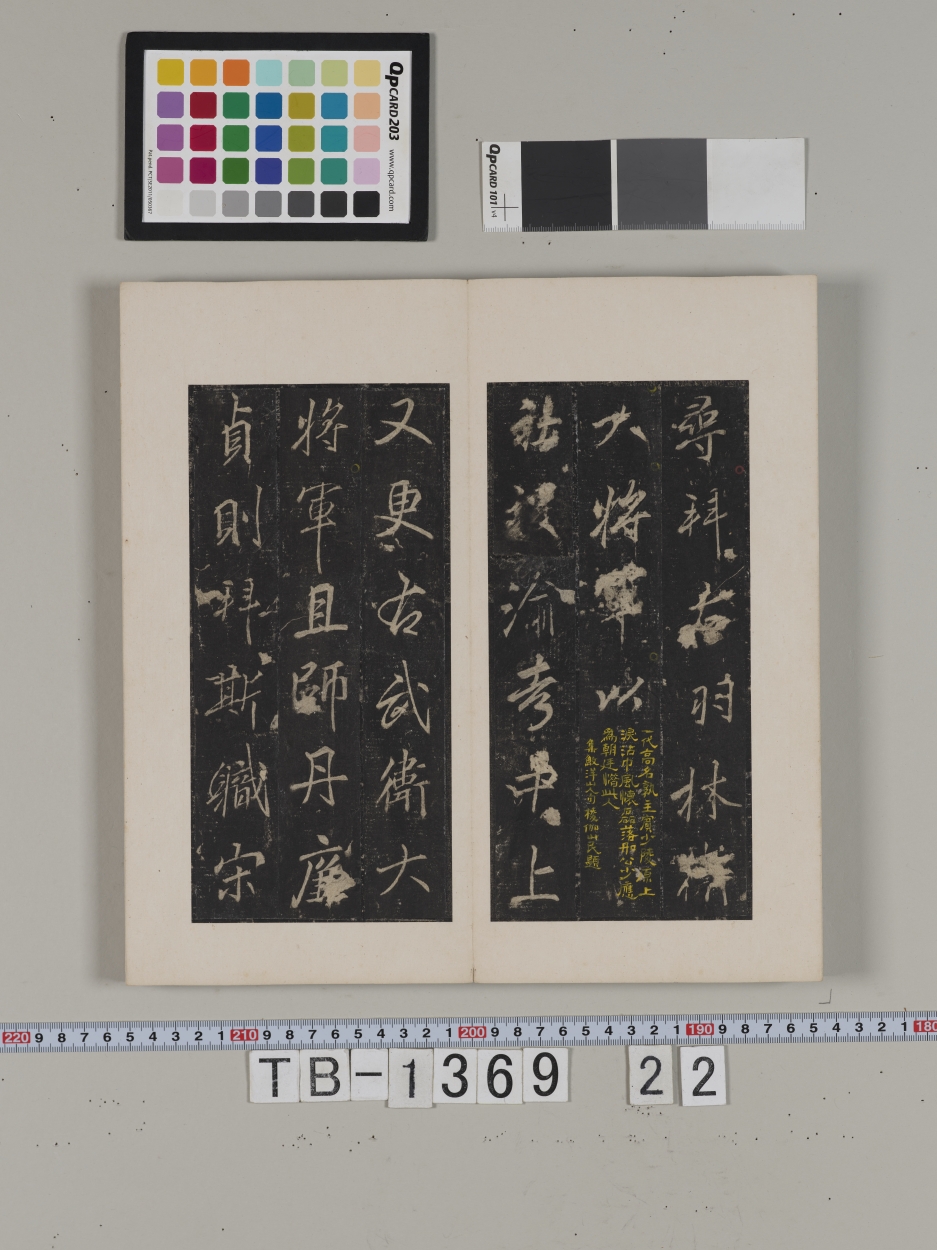 Qpcard 203 www.qpcard.com
Qpcard 101 v4
尋拜右羽林衛
大將軍以
一代高名孰主賓少陵原上
淚沾巾風懷磊落那公少應
為朝廷惜此人
洋山人句稜伽山民題
社稷渝孝弔上
又更右武衛大
將軍且師丹廉
貞則拜斯職宋
220 9 8 7 6 5 4 3 2 1 210 9 8 7 6 5 4 3 2 1 200 9 8 7 6 5 4 3 2 1 190 9 8 7 6 5 4 3 2 1 180
TB-1369 22